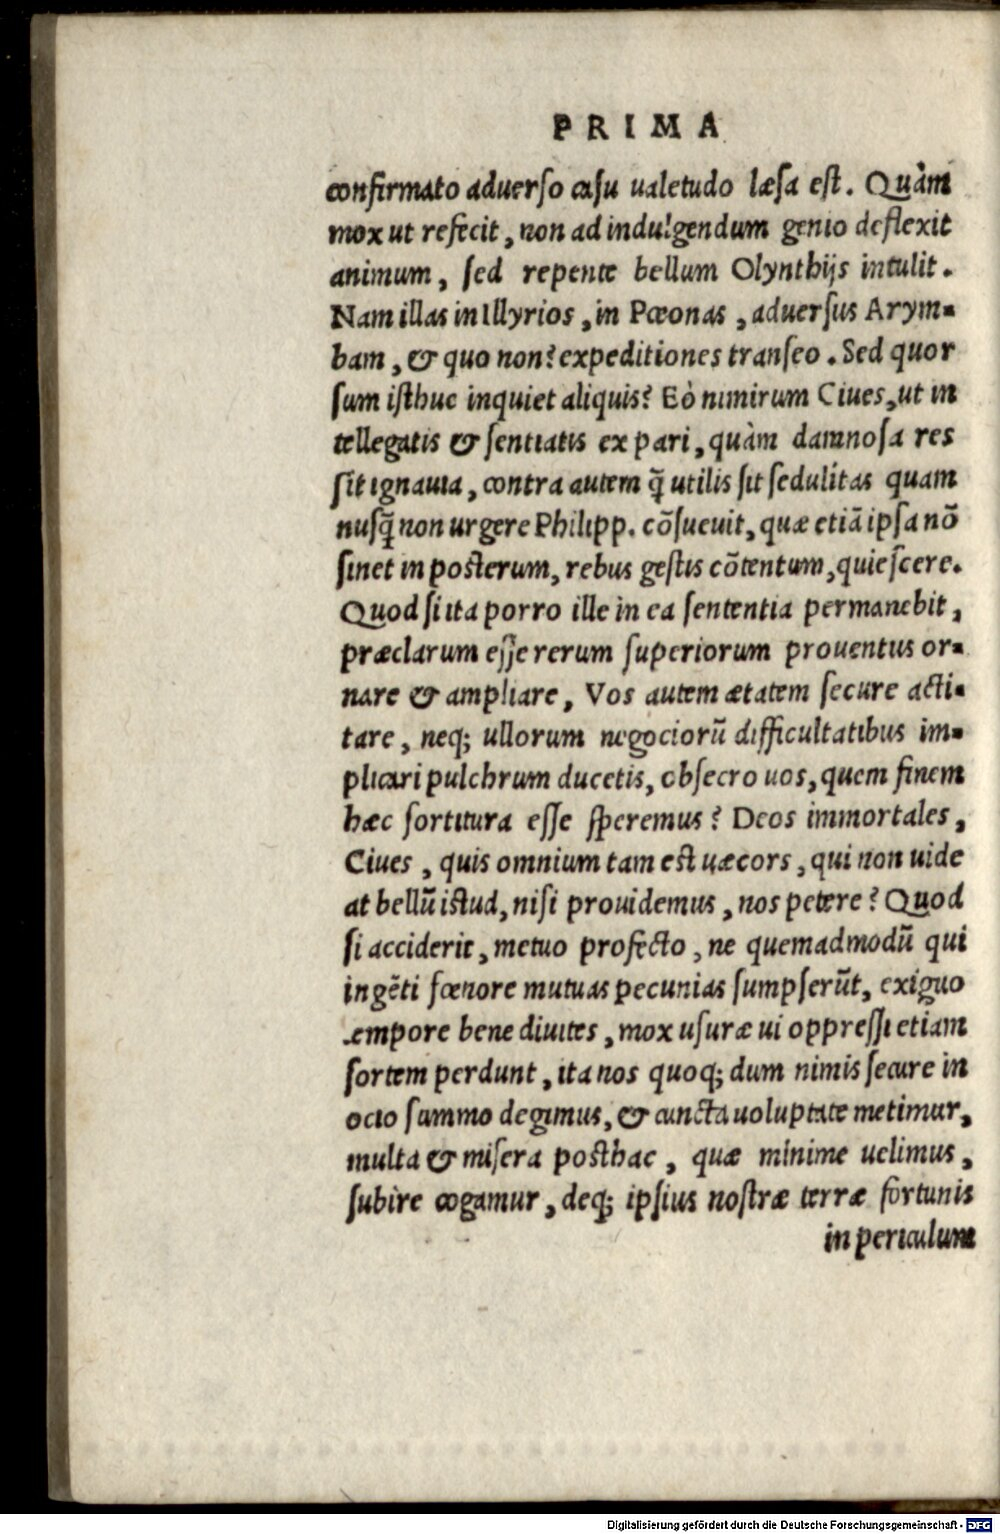 PRIMA
confirmato aduerso casu ualetudo læsa est. Quàm
mox ut refecit, non ad indulgendum genio deflexit
animum, sed repente bellum Olynthijs intulit.
Nam illas in Illyrios, in Pœonas, aduersus Arym-
bam, & quo non? expeditiones transeo. Sed quor
sum isthuc inquiet aliquis? Eò nimirum Ciues, ut in
tellegatis & sentiatis ex pari, quàm damnosa res
sit ignauia, contra autem q̃ utilis sit sedulitas quam
nusq̃ non urgere Philipp. cõsueuit, quæ etiã ipsa nõ
sinet in posterum, rebus gestis cõtentum, quiescere.
Quod si ita porro ille in ea sententia permanebit,
præclarum esse rerum superiorum prouentus or-
nare & ampliare, Vos autem ætatem secure acti-
tare, neq; ullorum negociorũ difficultatibus im-
plicari pulchrum ducetis, obsecro uos, quem finem
hæc sortitura esse speremus? Deos immortales,
Ciues, quis omnium tam est uæcors, qui non uide
at bellũ istud, nisi prouidemus, nos petere? Quod
si acciderit, metuo profecto, ne quemadmodũ qui
ingẽti fœnore mutuas pecunias sumpserũt, exiguo
tempore bene diuites, mox usuræ ui oppressi etiam
sortem perdunt, ita nos quoq; dum nimis secure in
ocio summo degimus, & cuncta uoluptate metimur,
multa & misera posthac, quæ minime uelimus,
subire cogamur, deq; ipsius nostræ terræ fortunis
in periculum
Digitalisierung gefördert durch die Deutsche Forschungsgemeinschaft - DFG